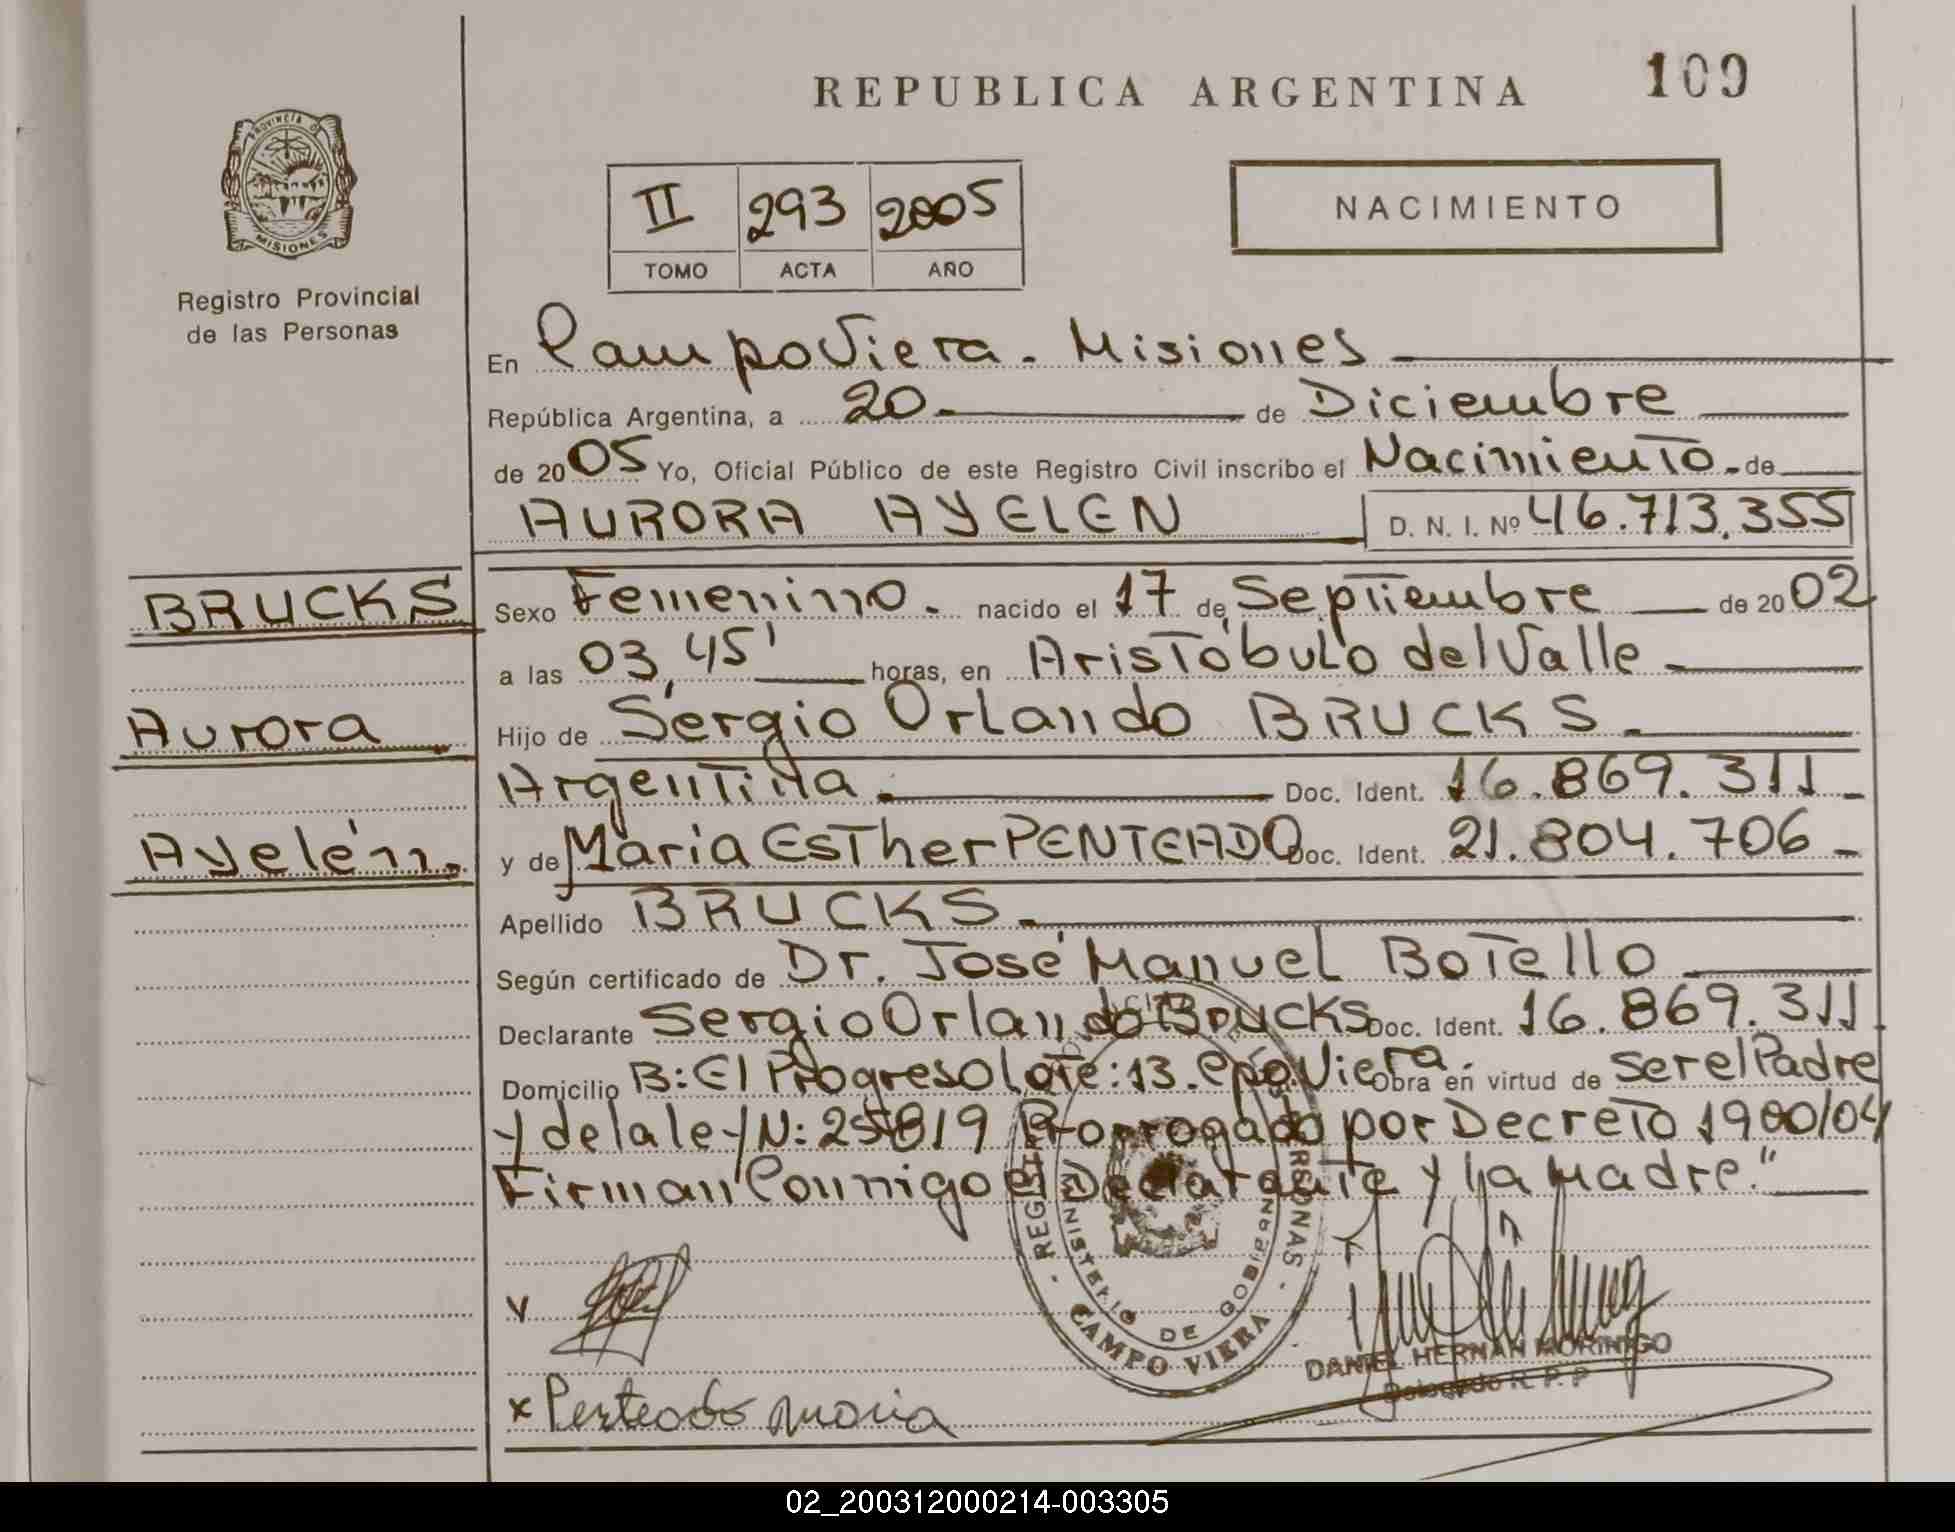 REPUBLICA ARGENTINA
109
PROVINCIA DE
MISIONES
Registro Provincial
de las Personas
II 293 2005
TOMO ACTA AÑO
NACIMIENTO
En Campo Viera - Misiones
República Argentina, a 20 de Diciembre
de 2005 Yo, Oficial Público de este Registro Civil inscribo el Nacimiento de
AURORA AYELEN D. N. I. Nº 46.713.355
BRUCKS
Aurora
Ayelén.
Sexo Femenino. nacido el 17 de Septiembre de 2002
a las 03,45' horas, en Aristóbulo del Valle
Hijo de Sergio Orlando BRUCKS
Argentina Doc. Ident. 16.869.311
y de Maria Esther PENTEADO Doc. Ident. 21.804.706
Apellido BRUCKS
Según certificado de Dr. José Manuel Botello
Declarante Sergio Orlando Brucks Doc. Ident. 16.869.311
Domicilio B: El Progreso Lote: 13. Cpo. Viera Obra en virtud de ser el Padre
y de la ley N: 25819 Prorrogado por Decreto 1900/04
Firman Conmigo el Declarante y La Madre."
REGISTRO PERSONAS
MINISTERIO DE GOBIERNO
CAMPO VIERA
DANIEL HERNAN MORINIGO
Delegado R. P. P
x Penteado Maria
02_200312000214-003305